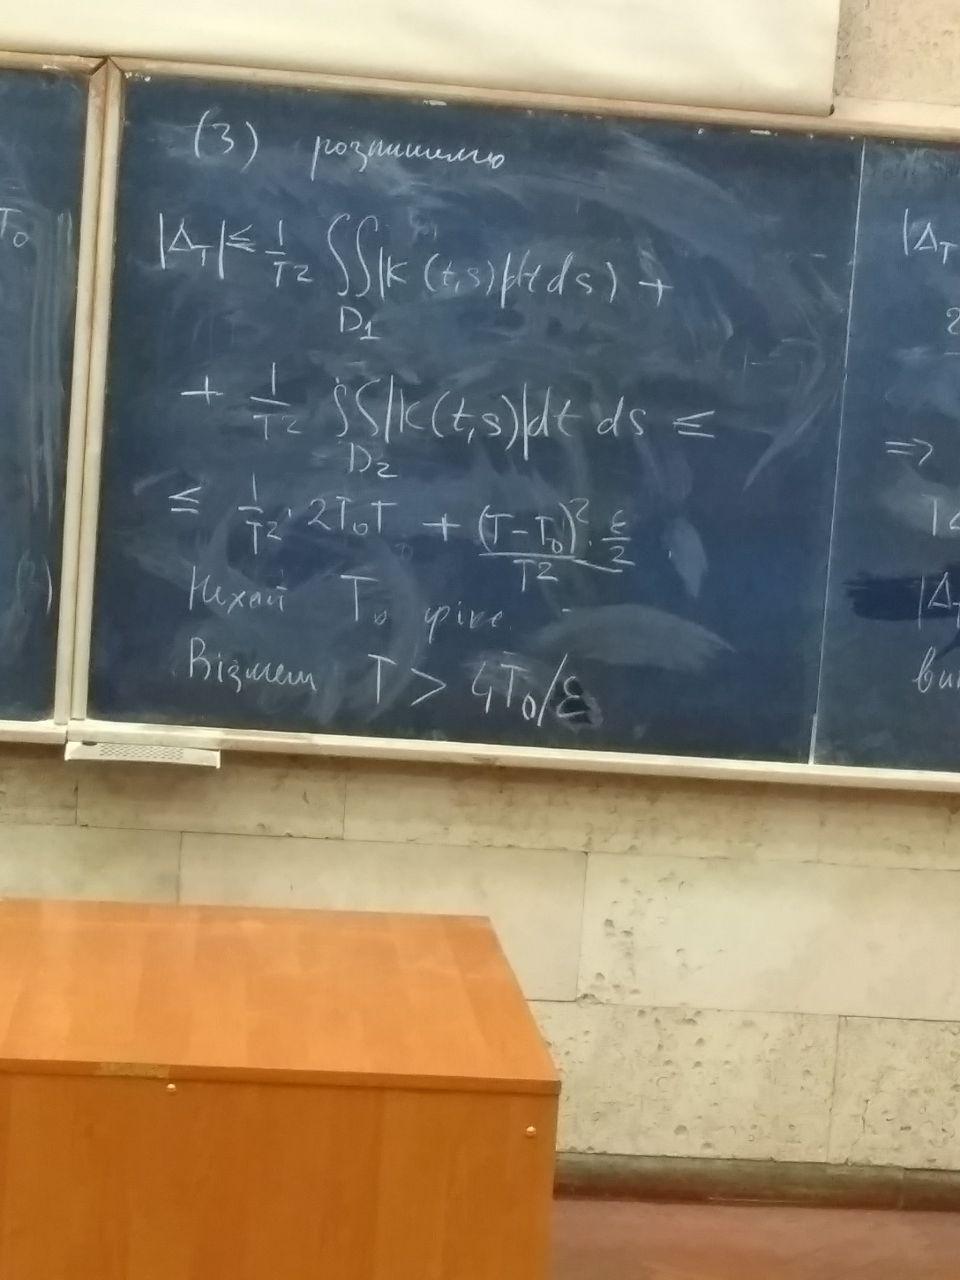 T₀
(3) розпишемо
|Δ_T| ≤ 1/T² ∬_{D₁} |K(t,s)|dt ds) +
+ 1/T² ∬_{D₂} |K(t,s)|dt ds ≤
≤ 1/T² · 2T₀T + (T-T₀)²/T² · ε/2
Нехай T₀ фікс.
Візмем T > 4T₀/ε
|Δ_T
2
=>
|Δ_T